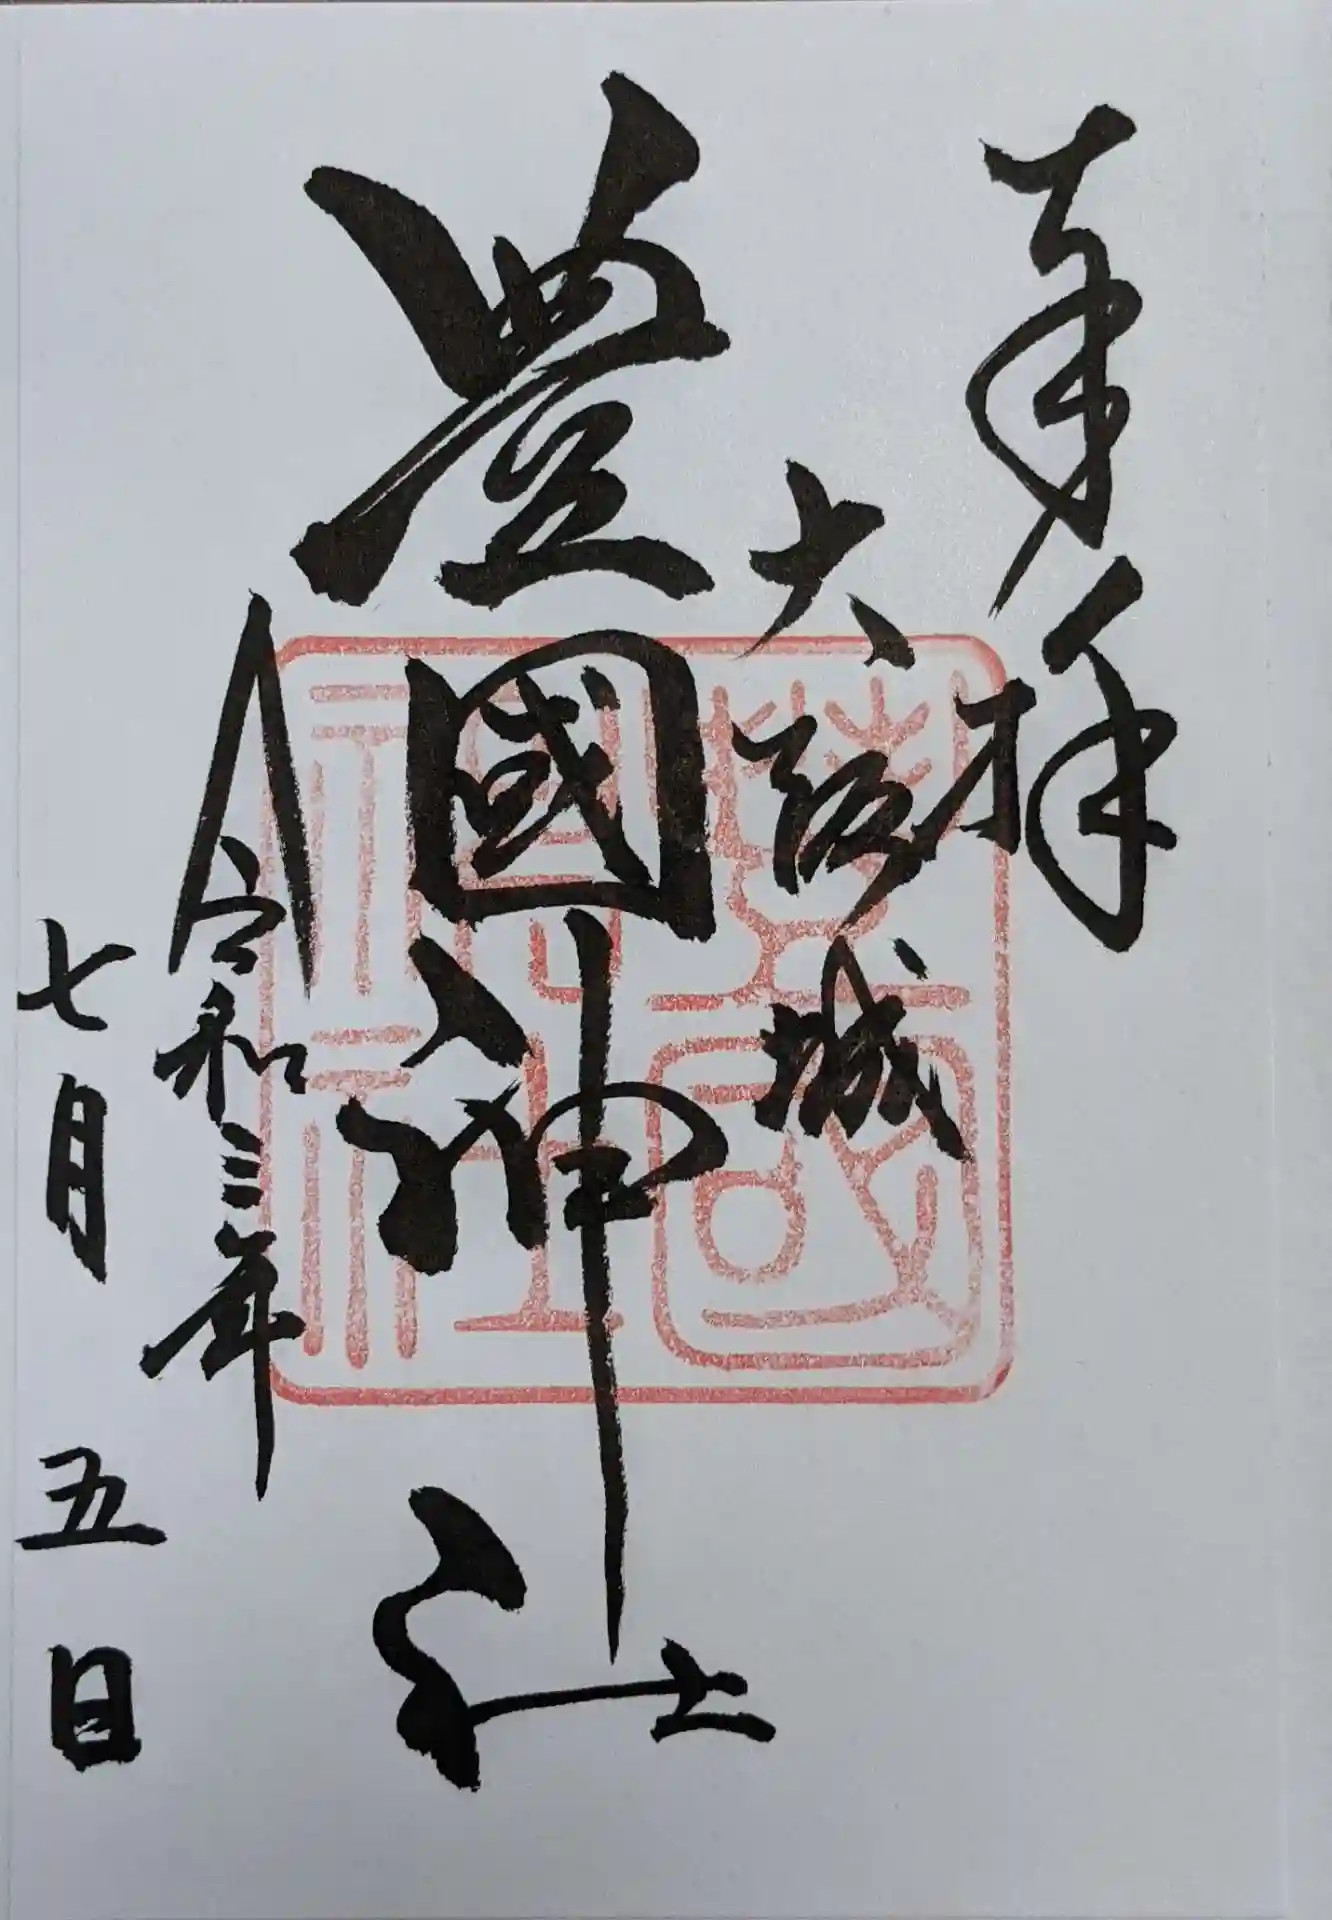 奉拝
大阪城
豊國神社
令和三年
七月五日
豊國神社